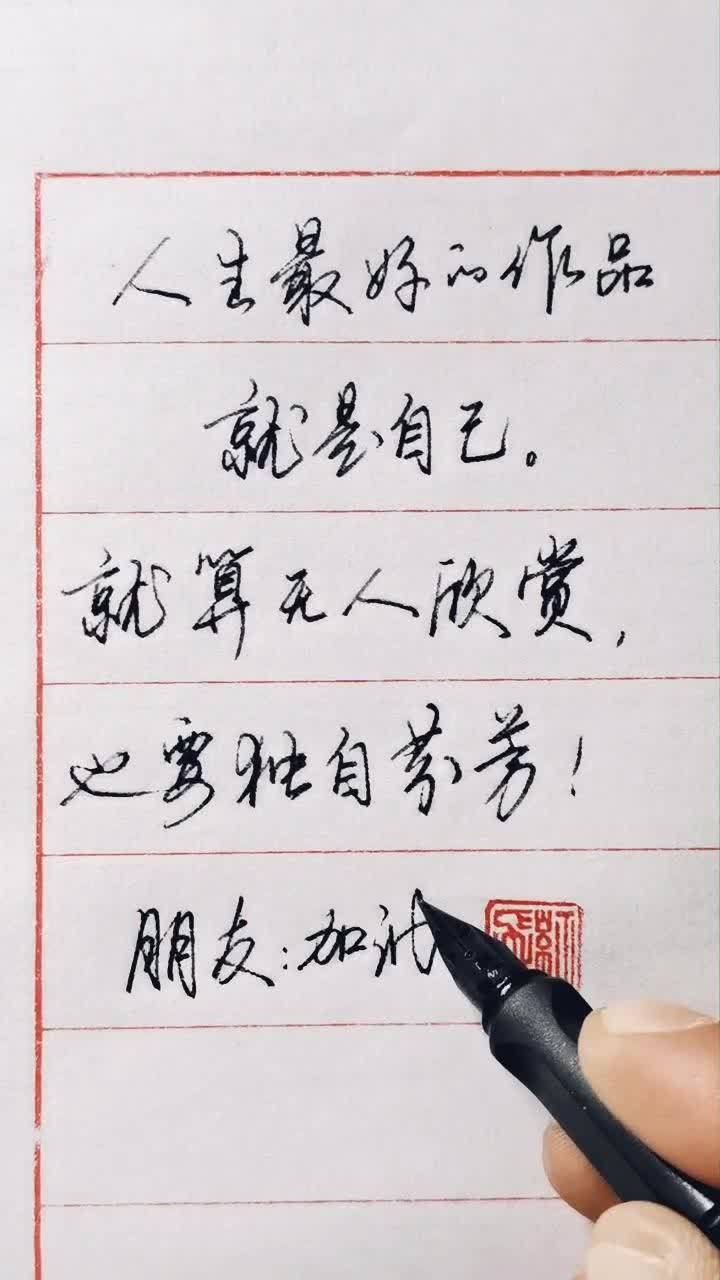 人生最好的作品
就是自己。
就算无人欣赏,
也要独自芬芳!
朋友:加油